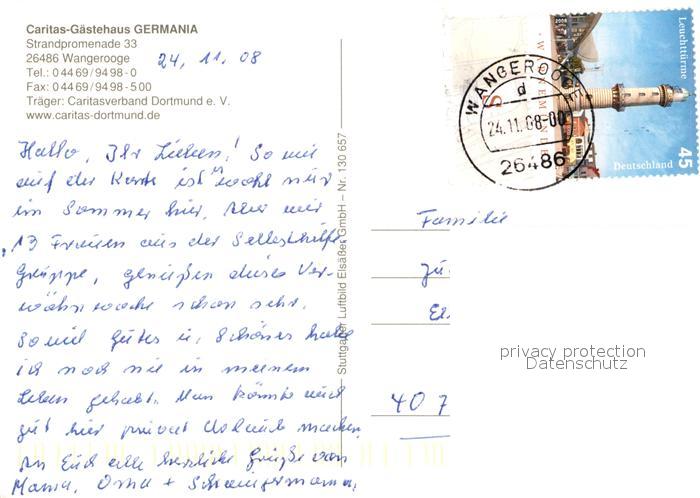 Caritas-Gästehaus GERMANIA
Strandpromenade 33
26486 Wangerooge
Tel.: 0 44 69 / 94 98 - 0
Fax: 0 44 69 / 94 98 - 5 00
Träger: Caritasverband Dortmund e. V.
www.caritas-dortmund.de
24. 11. 08
Hallo, Ihr Lieben! So wie
auf der Karte ist es wohl nur
im Sommer hier. Aber wir
13 Frauen aus der Selbsthilfe
gruppe, genießen diese Ver-
wöhnwoche schon sehr.
Soviel Gutes u. Schönes habe
ich noch nie in meinem
Leben gehabt. Man könnte auch
gut hier privat Urlaub machen.
An Euch alle herzliche Grüße von
Mama, Oma + Schwiegermama
Stuttgarter Luftbild Elsäßer GmbH – Nr. 130 657
2008
Leuchttürme
WARNEMÜNDE
Deutschland
45
WANGEROOGE
d
24.11.08-00
26486
Familie
40 7
privacy protection
Datenschutz